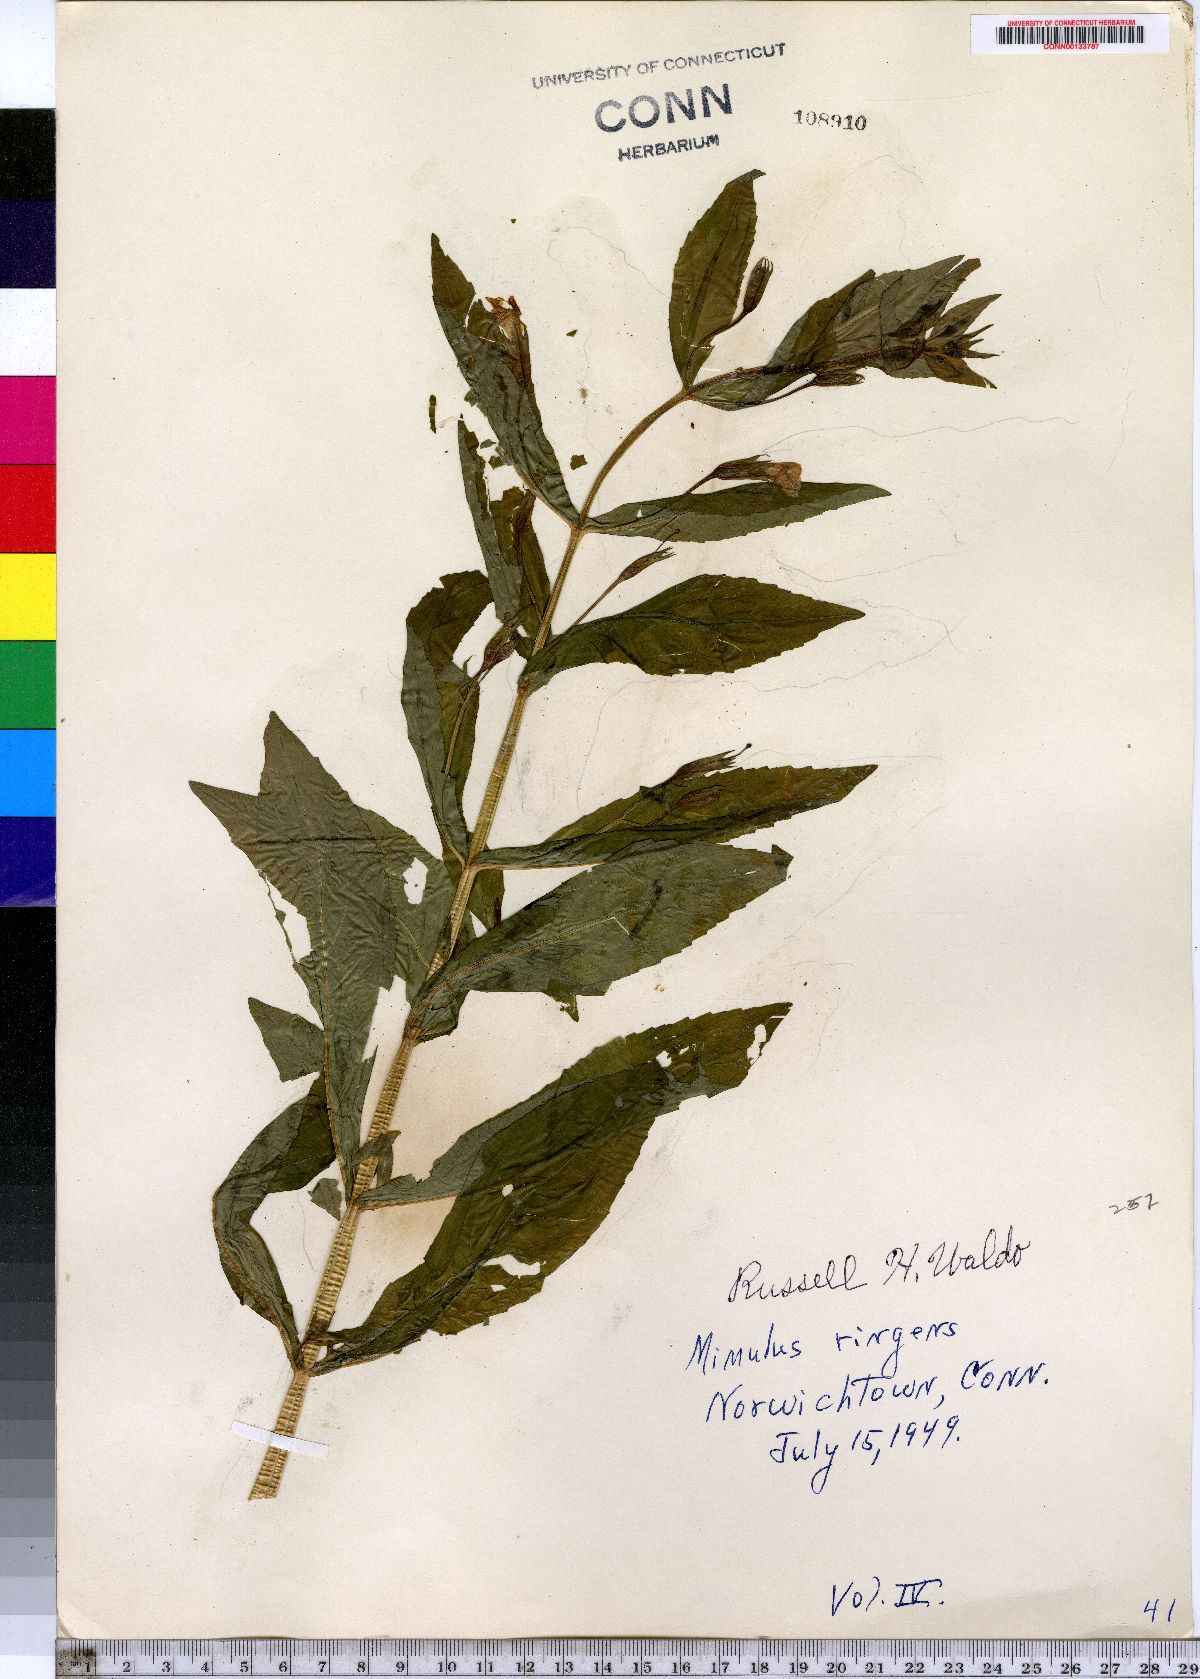 UNIVERSITY OF CONNECTICUT HERBARIUM
CONN00133787
UNIVERSITY OF CONNECTICUT
CONN
HERBARIUM
108910
257
Russell H. Waldo
Mimulus ringens
Norwichtown, Conn.
July 15, 1949.
Vol. IV.
41
1 2 3 4 5 6 7 8 9 10 11 12 13 14 15 16 17 18 19 20 21 22 23 24 25 26 27 28 29